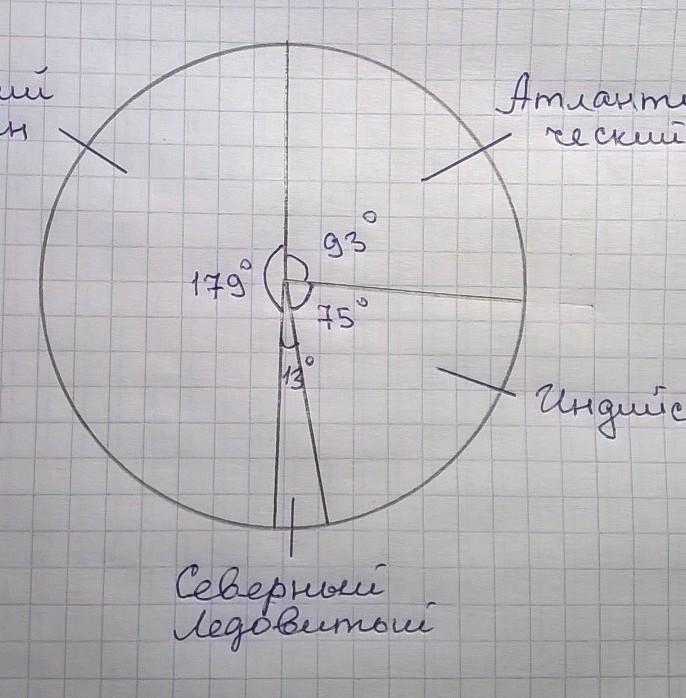 ий
н
Атланти
ческий
93°
179°
75°
13°
Индийс
Северный
Ледовитый